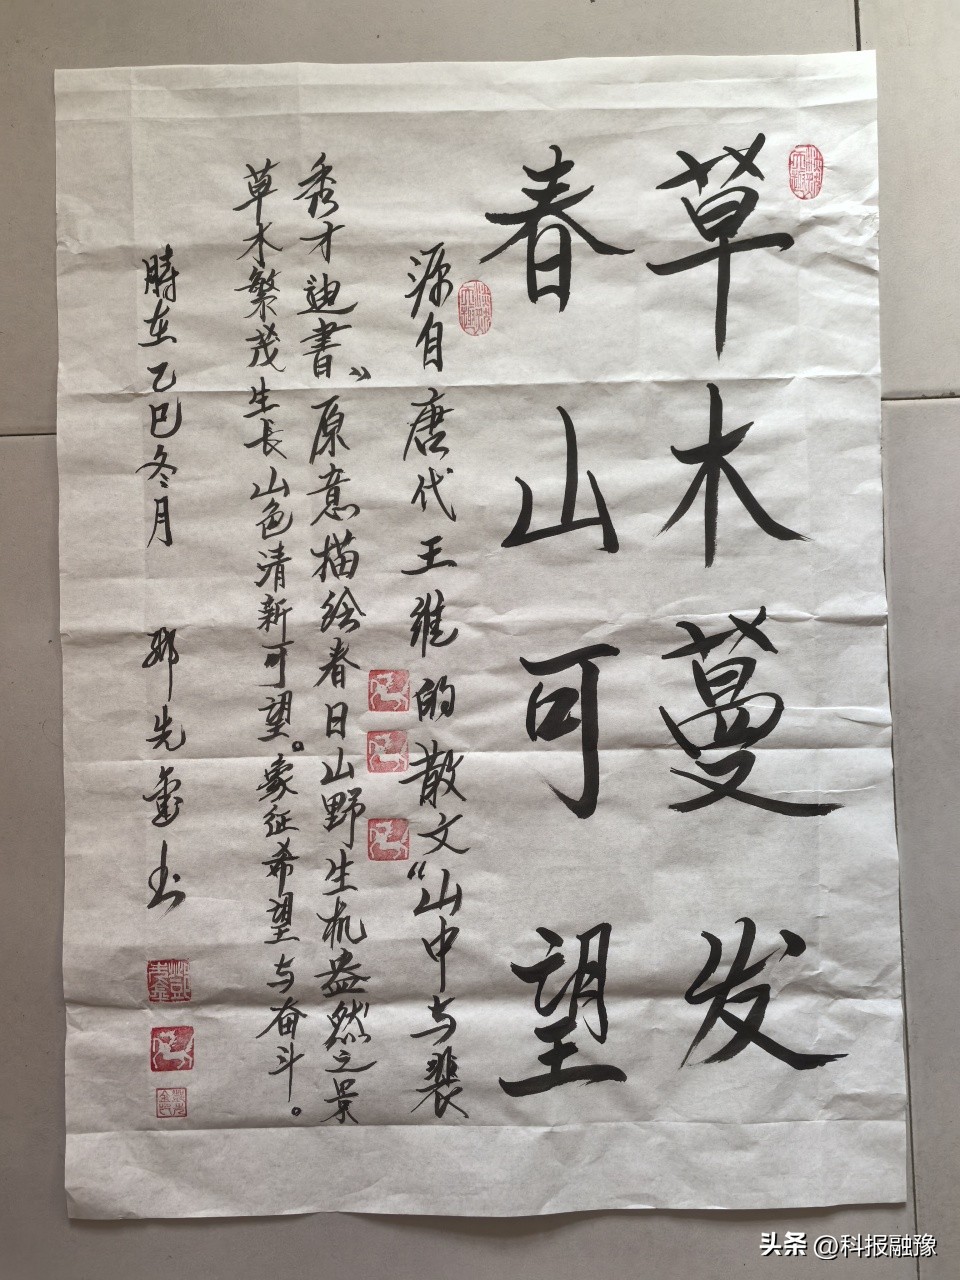 草木蔓发
春山可望
源自唐代王维的散文“山中与裴
秀才迪書”原意描绘春日山野生机盎然之景
草木繁茂生長山色清新可望。象征希望与奋斗。
時在乙巳冬月 先 书
头条 @科报融豫